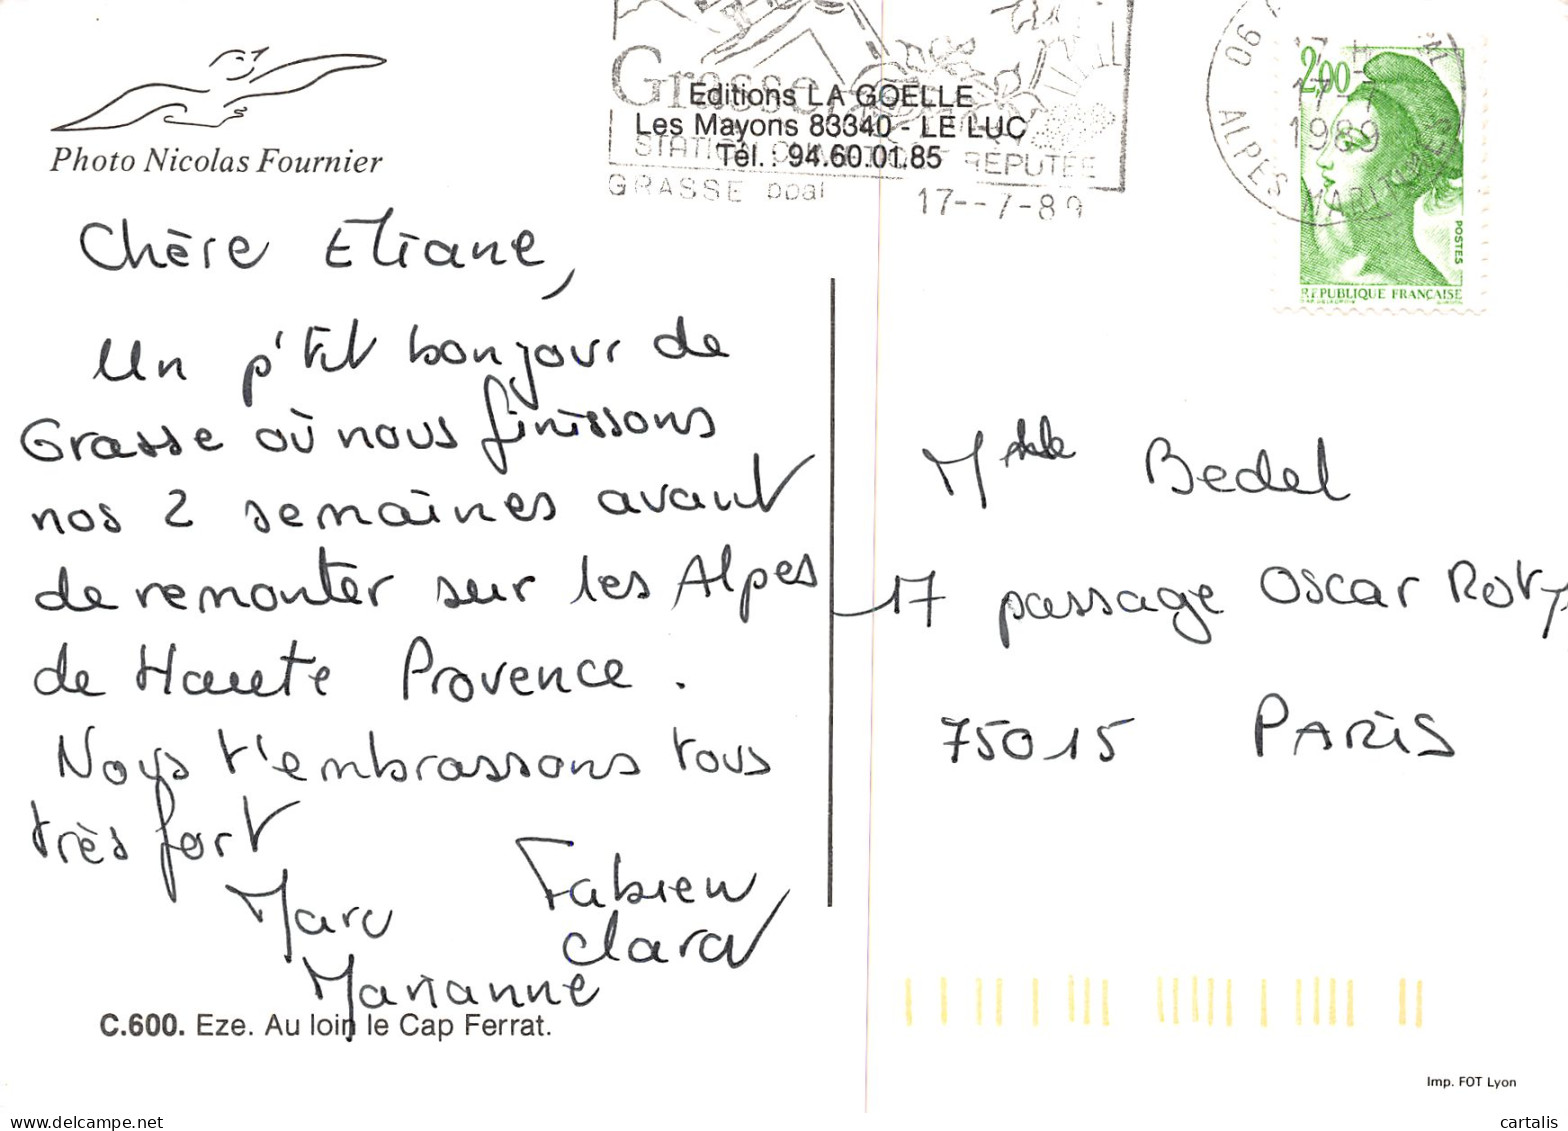 Photo Nicolas Fournier
Grasse
Editions LA GOELLE
Les Mayons 83340 - LE LUC
Tél. : 94.60.01.85
REPUTÉE
GRASSE ppal 17--7-89
06
17 H
17-7
1989
ALPES MARITIMES
2,00
POSTES
RÉPUBLIQUE FRANÇAISE
Chère Eliane,
Un p'tit bonjour de
Grasse où nous finissons
nos 2 semaines avant
de remonter sur les Alpes
de Haute Provence.
Nous t'embrassons tous
très fort
Marc
Fabien
Clara
Marianne
Bedel
17 passage Oscar Roty
75015 PARIS
C.600. Eze. Au loin le Cap Ferrat.
Imp. FOT Lyon
cartalis
delcampe.net